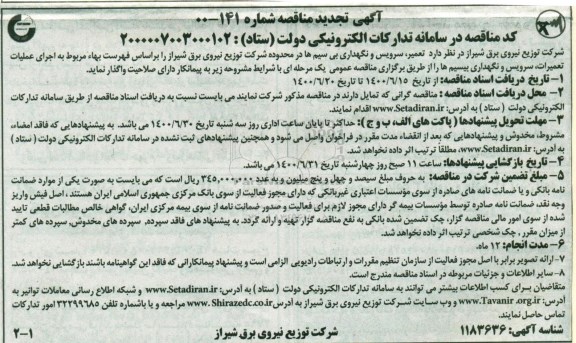 آگهی تجدید مناقصه شماره ۱۴۱-۰۰
کد مناقصه در سامانه تدارکات الکترونیکی دولت (ستاد) : ۲۰۰۰۰۰۷۰۰۳۰۰۰۱۰۲
شرکت توزیع نیروی برق شیراز در نظر دارد تعمیر، سرویس و نگهداری بی سیم ها در محدوده شرکت توزیع نیروی برق شیراز را براساس فهرست بهاء مربوط به اجرای عملیات
تعمیرات، سرویس و نگهداری بیسیم ها را از طریق برگزاری مناقصه عمومی یک مرحله ای با شرایط مشروحه زیر به پیمانکار دارای صلاحیت واگذار نماید.
۱- تاریخ دریافت اسناد مناقصه: از تاریخ ۱۴۰۰/۶/۱۵ تا تاریخ ۱۴۰۰/۶/۲۰
۲- محل دریافت اسناد مناقصه: مناقصه گرانی که تمایل دارند در مناقصه مذکور شرکت نمایند می بایست نسبت به دریافت اسناد مناقصه از طریق سامانه تدارکات
الکترونیکی دولت (ستاد) به آدرس: www.Setadiran.ir اقدام نمایند.
۳- مهلت تحویل پیشنهادها (پاکت های الف، ب و ج): حداکثر تا پایان ساعت اداری روز سه شنبه تاریخ ۱۴۰۰/۶/۳۰ می باشد. به پیشنهادهایی که فاقد امضاء،
مشروط، مخدوش و پیشنهادهایی که بعد از انقضاء مدت مقرر در فراخوان واصل می شود و همچنین پیشنهادهای ثبت نشده در سامانه تدارکات الکترونیکی دولت (ستاد)
به آدرس: www.Setadiran.ir، مطلقاً ترتیب اثر داده نخواهد شد.
۴- تاریخ بازگشایی پیشنهادها: ساعت ۱۱ صبح روز چهارشنبه تاریخ ۱۴۰۰/۶/۳۱ می باشد.
۵- مبلغ تضمین شرکت در مناقصه: به حروف مبلغ سیصد و چهل و پنج میلیون و به عدد ۳۴۵,۰۰۰,۰۰۰ ریال است که می بایست به صورت یکی از موارد ضمانت
نامه بانکی و یا ضمانت نامه های صادره از سوی مؤسسات اعتباری غیربانکی که دارای مجوز فعالیت از سوی بانک مرکزی جمهوری اسلامی ایران هستند، اصل فیش واریز
وجه نقد، ضمانت نامه صادره توسط مؤسسات بیمه گر دارای مجوز لازم برای فعالیت و صدور ضمانت نامه از سوی بیمه مرکزی ایران، گواهی خالص مطالبات قطعی تایید
شده از سوی امور مالی مناقصه گزار، چک تضمین شده بانکی به نفع مناقصه گزار تهیه و ارائه گردد. به پیشنهاد های فاقد سپرده، سپرده های مخدوش، سپرده های کمتر
از میزان مقرر، چک شخصی ترتیب اثر داده نخواهد شد.
۶- مدت انجام: ۱۲ ماه.
۷- ارائه تصویر برابر با اصل مجوز فعالیت از سازمان تنظیم مقررات و ارتباطات رادیویی الزامی است و پیشنهاد پیمانکارانی که فاقد این گواهینامه باشند بازگشایی نخواهد شد.
۸- سایر اطلاعات و جزئیات مربوطه در اسناد مناقصه مندرج است.
متقاضیان برای کسب اطلاعات بیشتر می توانند به سامانه تدارکات الکترونیکی دولت (ستاد) به آدرس: www.Setadiran.ir و شبکه اطلاع رسانی معاملات توانیر به
آدرس: www.Tavanir.org.ir و وب سایت شرکت توزیع نیروی برق شیراز به آدرس www.Shirazedc.co.ir مراجعه و یا باشماره تلفن ۳۲۲۹۹۶۸۵ امور تدارکات
تماس حاصل نمایند.
شناسه آگهی: ۱۱۸۳۶۳۶
شرکت توزیع نیروی برق شیراز
۲-۱